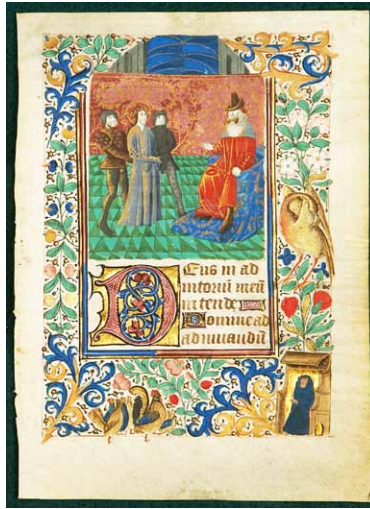 Deus in ad
iutoriū meū
intende
Domine ad
adiuuandū